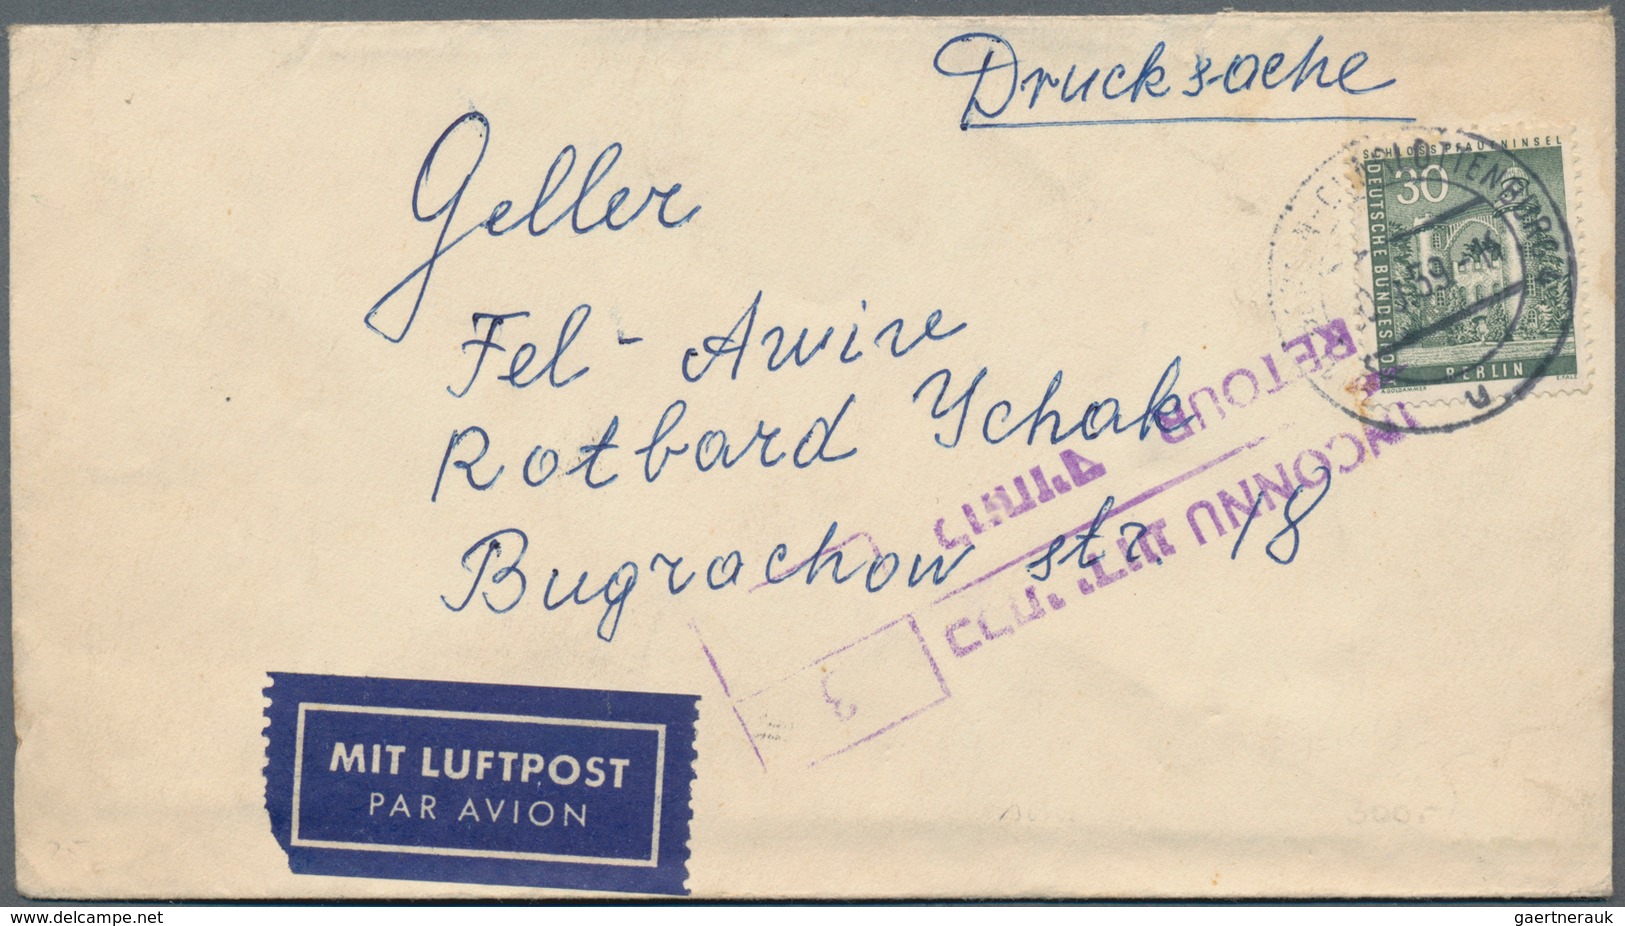 Drucksache
Geller
Fel- Awive
Rotbard Ychak
Bugrachow str 18
SCHLOSS PFAUENINSEL
30
DEUTSCHE BUNDESPOST
BERLIN
59
RETOUR
INCONNU
3
MIT LUFTPOST
PAR AVION
300.-
www.delcampe.net
gaertnerauk